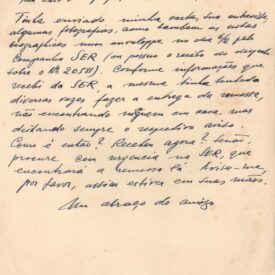 Tinha enviado minha carta, sua entrevista
algumas fotografias, como também as notas
biográficas num envelope no dia 2/5 pela
Companhia SER (eu possuo o recibo da
sobre o Nº 20581). Conforme informações que
recebi da SER, a mesma tinha tentado
diversas vezes fazer a entrega da remessa,
não encontrando ninguem em casa, mas
deitando sempre o respectivo aviso.
Como é então? Recebeu agora? Senão,
procure, com urgencia na SER, que
encontrará a remessa lá. Avise-me
por favor, assim estiver em suas mãos.
Um abraço do amigo